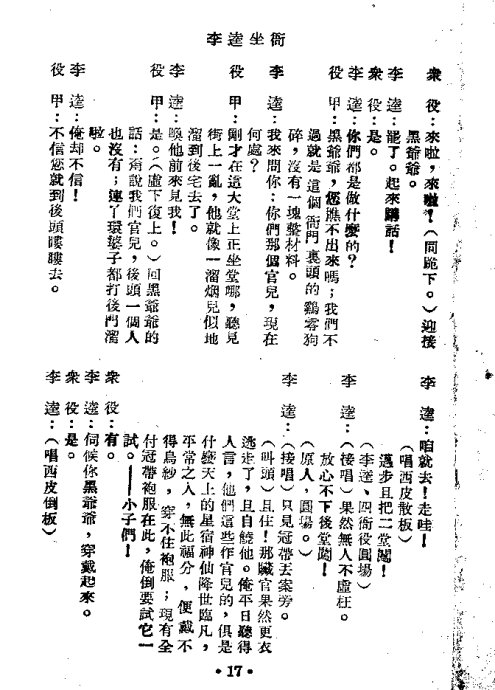 李逵坐衙
衆　役：來啦，來啦！（同跪下。）迎接
黑爺爺。
李　逵：罷了。起來講話！
衆　役：是。
李　逵：你們都是做什麼的？
役　甲：黑爺爺，您瞧不出來嗎；我們不
過就是這個衙門裏頭的鷄零狗
碎，沒有一塊整材料。
李　逵：我來問你：你們那個官兒，現在
何處？
役　甲：剛才在這大堂上正坐堂哪，聽見
街上一亂，他就像一溜烟兒似地
溜到後宅去了。
李　逵：喚他前來見我！
役　甲：是。（虛下復上。）回黑爺爺的
話：甭說我們官兒，後頭一個人
也沒有；連丫環婆子都打後門溜
啦。
李　逵：俺却不信！
役　甲：不信您就到後頭瞜瞜去。
李　逵：咱就去！走哇！
（唱西皮散板）
邁步且把二堂闖！
（李逵、四衙役圓場）
李　逵：（接唱）果然無人不虛枉。
放心不下後堂闖！
（原人，圓場。）
李　逵：（接唱）只見冠帶丟案旁。
（叫頭）且住！那贓官果然更衣
逃走了，且自饒他。俺平日聽得
人言，他們這些作官兒的，俱是
什麽天上的星宿神仙降世臨凡，
平常之人，無此福分，便戴不
得烏紗，穿不住袍服；現有全
付冠帶袍服在此，俺倒要試它一
試。——小子們！
衆　役：有。
李　逵：伺候你黑爺爺，穿戴起來。
衆　役：是。
李　逵：（唱西皮倒板）
·17·